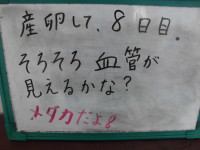 産卵して、8日目。
そろそろ 血管が
見えるかな?
メダカだよ8